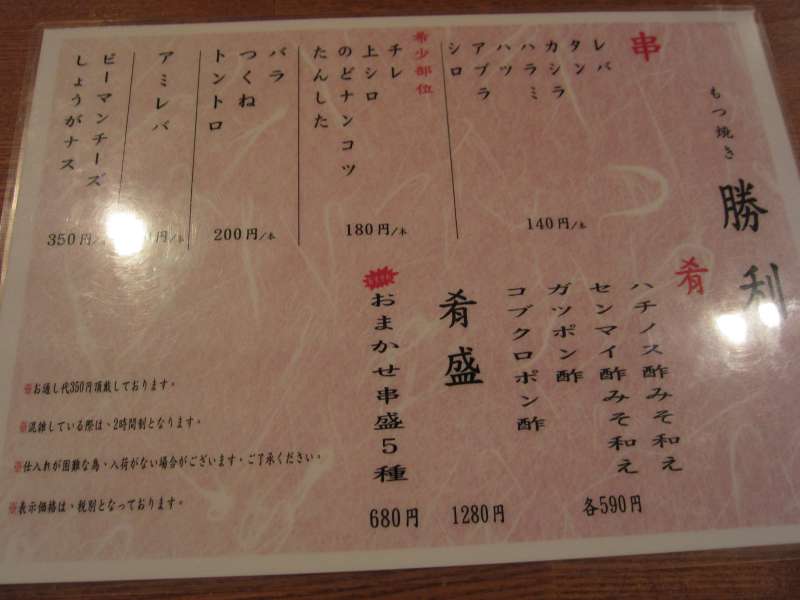 もつ焼き 勝利
串
レバ
タン
カシラ
ハラミ
ハツ
アブラ
シロ
140円/本
希少部位
チレ
上シロ
のどナンコツ
たんした
180円/本
バラ
つくね
トントロ
200円/本
アミレバ
円/本
ピーマンチーズ
しょうがナス
350円/本
肴
ハチノス酢みそ和え
センマイ酢みそ和え
ガツポン酢
コブクロポン酢
各590円
肴盛
1280円
おまかせ串盛5種
680円
※お通し代350円頂戴しております。
※混雑している際は、2時間制となります。
※仕入れが困難な為、入荷がない場合がございます。ご了承ください。
※表示価格は、税別となっております。